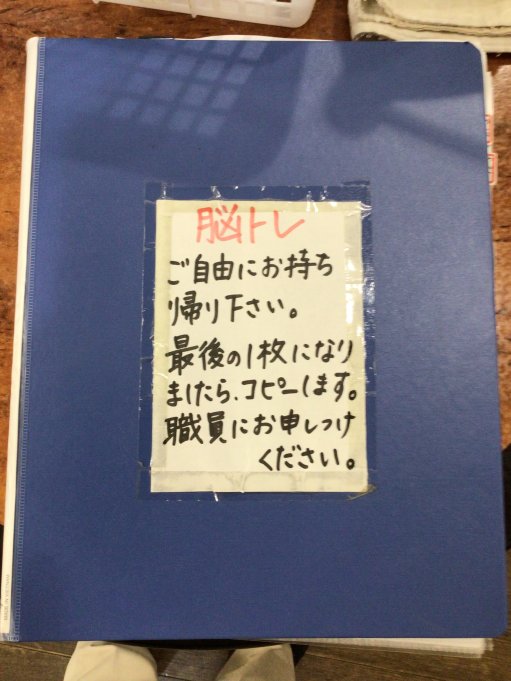 脳トレ
ご自由にお持ち
り帰り下さい。
最後の1枚になり
ましたら、コピーします。
職員にお申しつけ
ください。